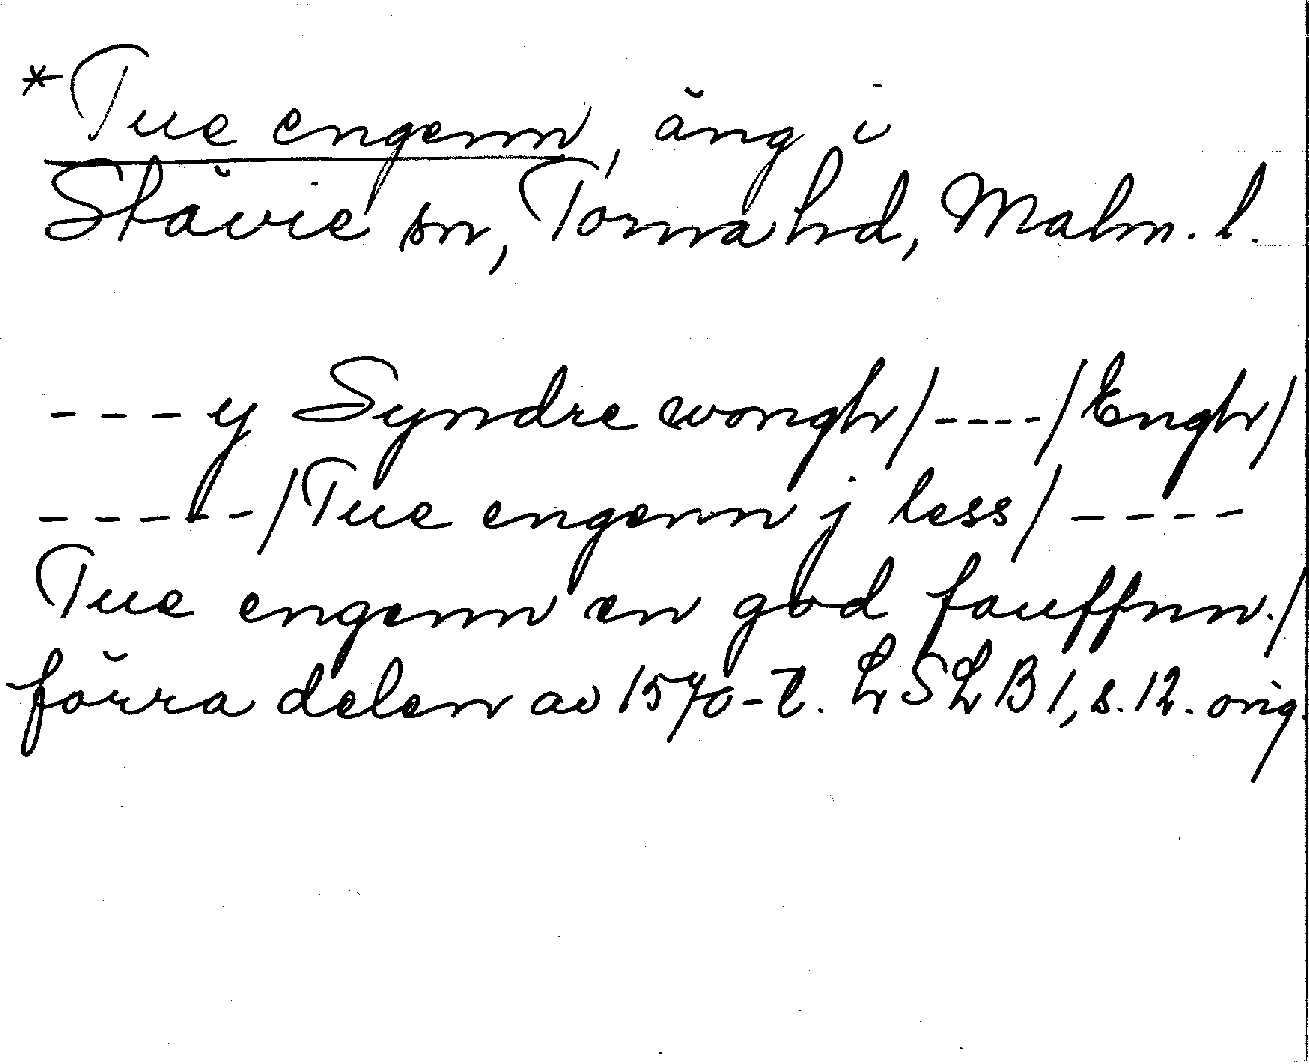 *Tue engenn, äng i
Stävie sn, Torna hd, Malm. l.
---y Syndre wongh/----/Engh/
-----/Tue engenn j less/----
Tue engenn en god fauffnn./
förra delen av 1570-t. LSLB 1, s. 12. orig.